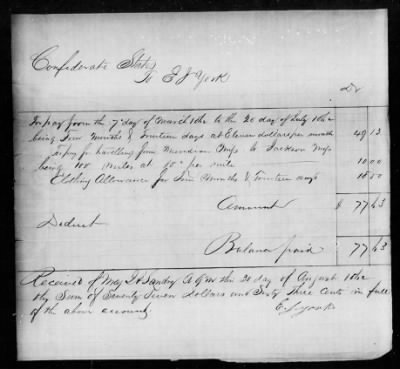 Confederate States
To E J York
Dr
To pay from the 7th day of March 1862 to the 20 day of July 1862
being Four Months & Fourteen days at Eleven dollars per month 49 13
To pay for travelling from Meridian Miss to Jackson Miss
being 100 Miles at 10cts per mile 10 00
Clothing Allowance for Four Months & Fourteen days 18 50
Amount $ 77 63
Deduct
Balance paid 77 63
Received of Maj Landry A Q M the 20 day of August 1862
the Sum of Seventy Seven Dollars and Sixty three Cents in full
of the above account.
E J York